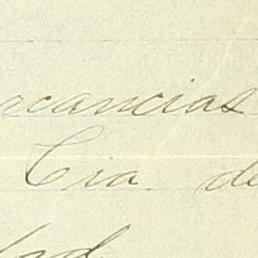 rcancias
Cia. de
dad.